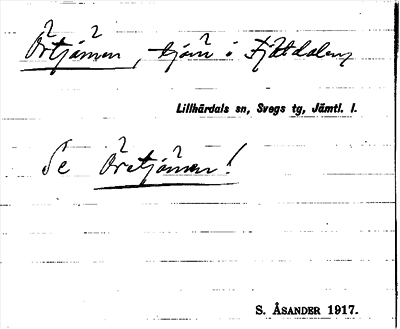 Örtjärnen, tjärn i Fjätdalen,
Lillhärdals sn, Svegs tg, Jämtl. l.
Se Övretjärnen!
S. ÅSANDER 1917.